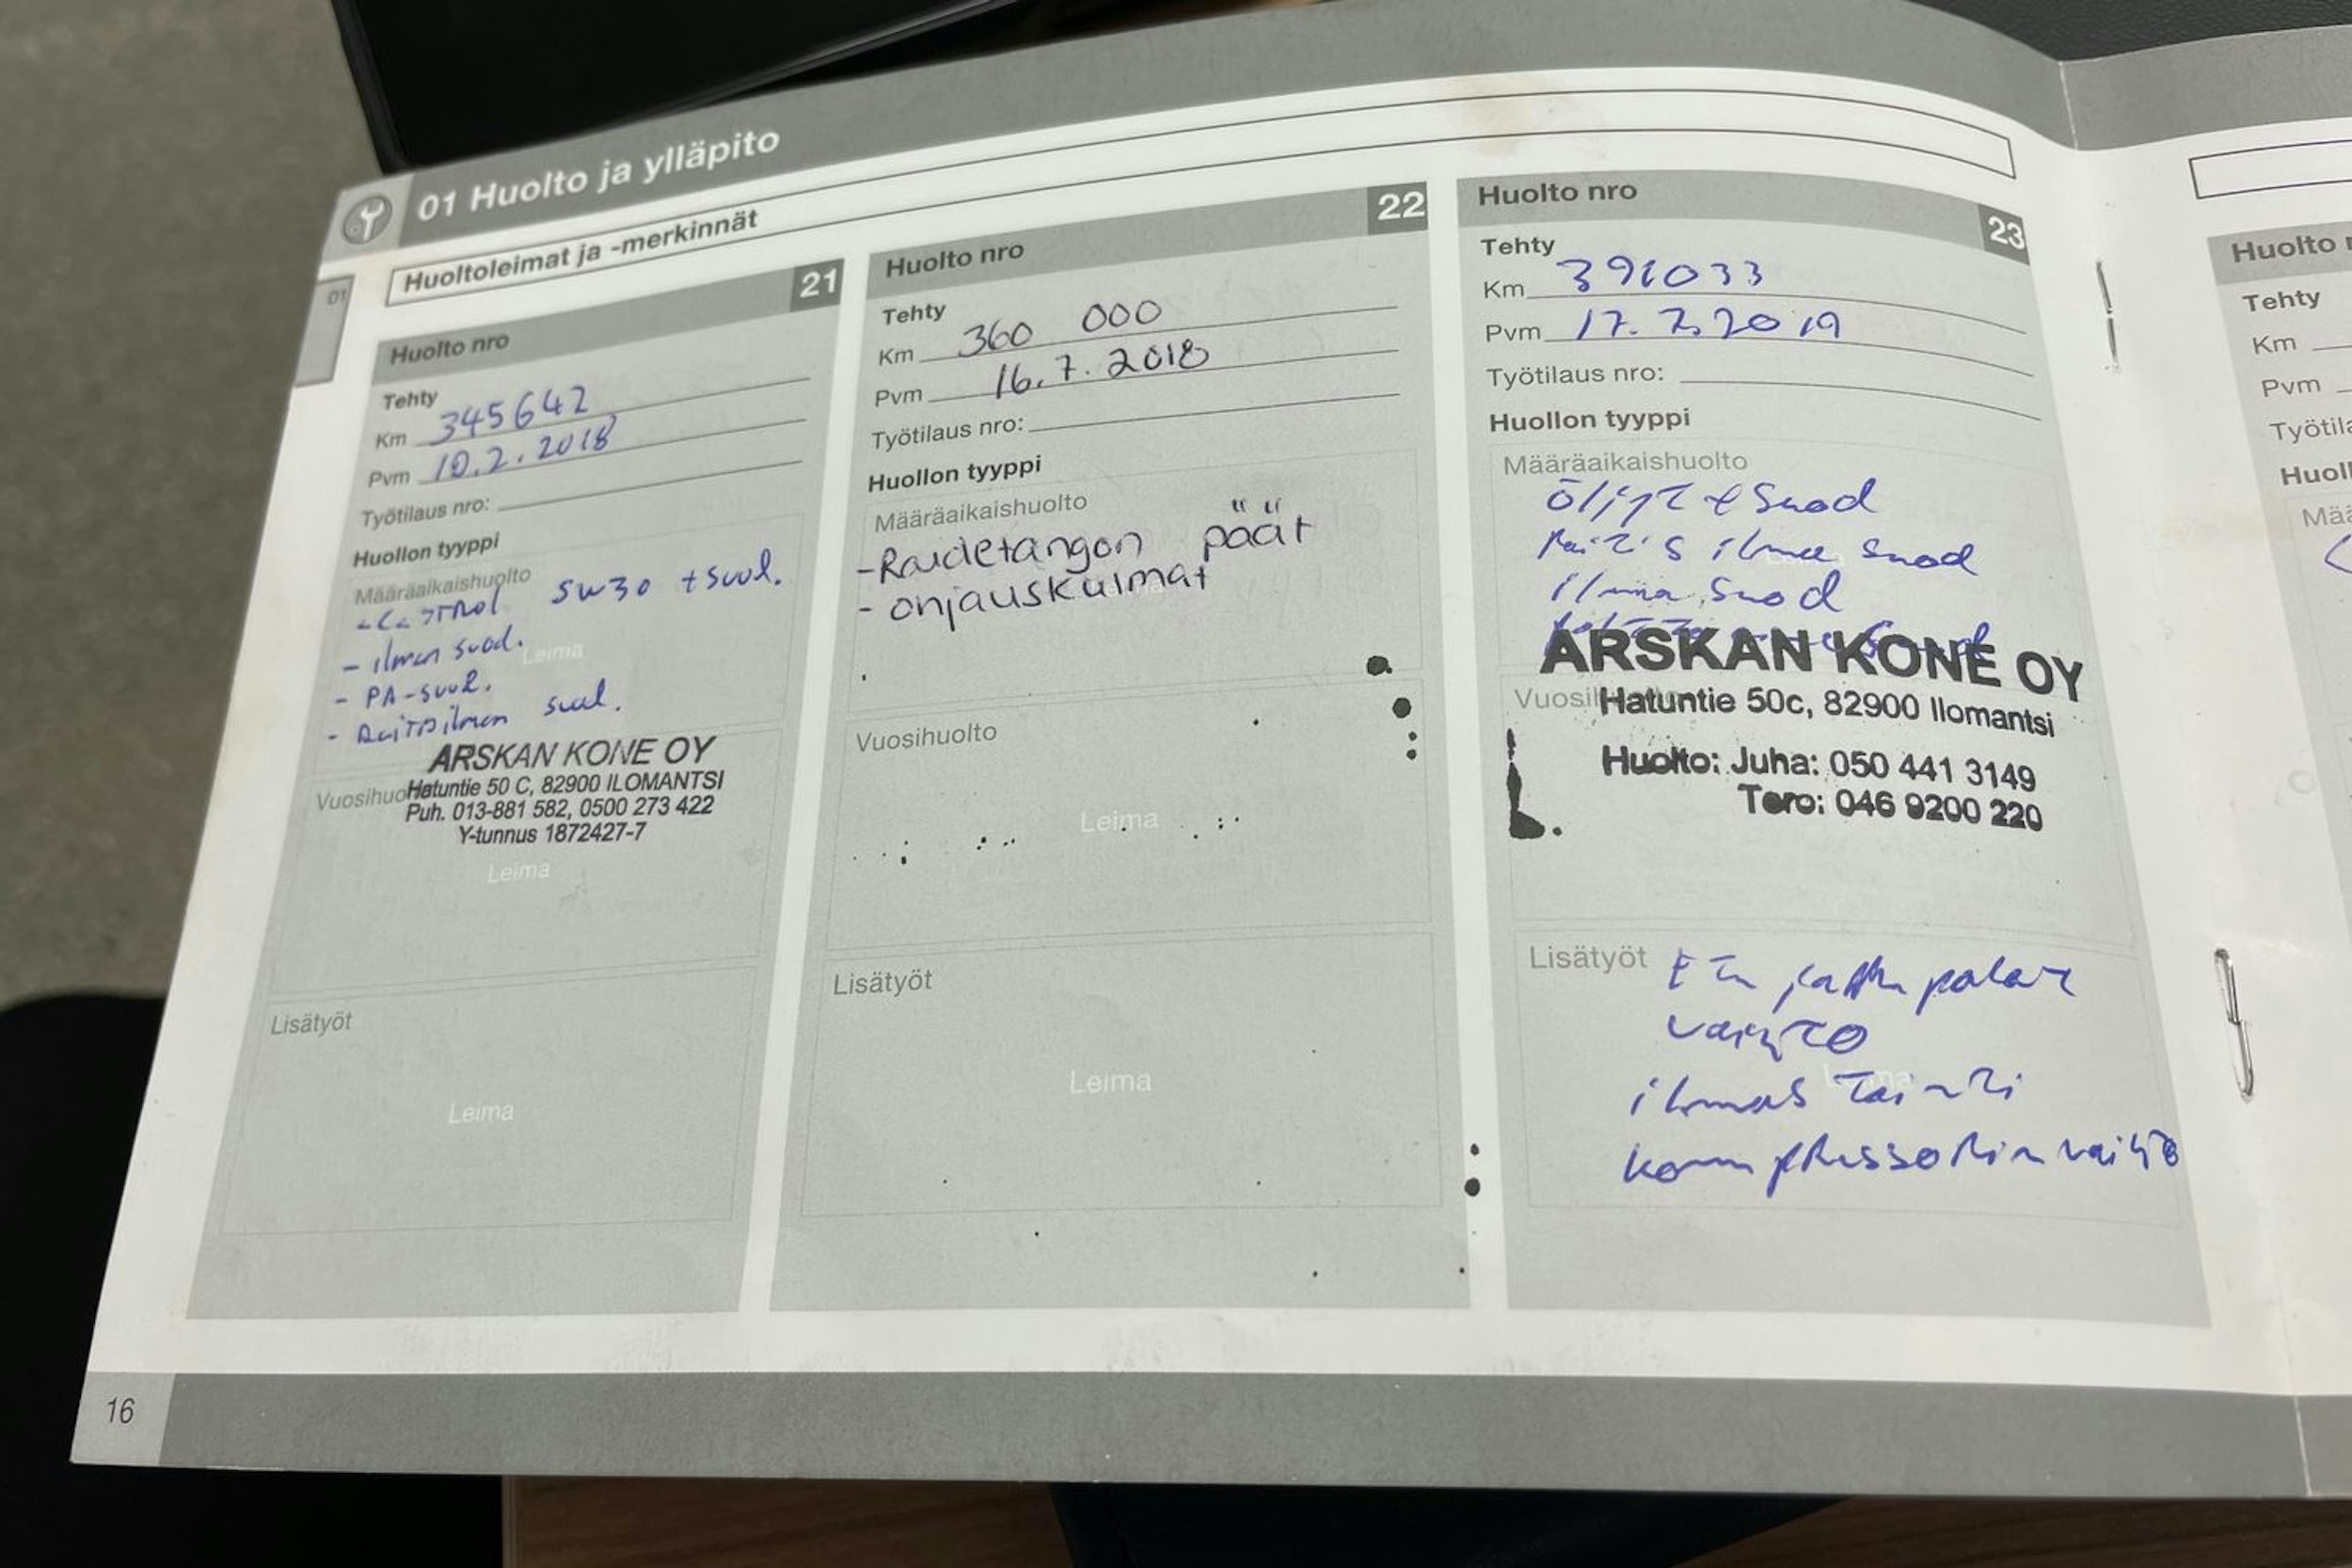 01 Huolto ja ylläpito
01
Huoltoleimat ja -merkinnät
Huolto nro 21
Tehty
Km 345642
Pvm 10.2.2018
Työtilaus nro:
Huollon tyyppi
Määräaikaishuolto
- Castrol 5W30 + suod.
- ilman suod.
- PA-suod.
- Raitisilman suod.
Leima
ARSKAN KONE OY
Vuosihuo
Hatuntie 50 C, 82900 ILOMANTSI
Puh. 013-881 582, 0500 273 422
Y-tunnus 1872427-7
Leima
Lisätyöt
Leima
Huolto nro 22
Tehty
Km 360 000
Pvm 16.7.2018
Työtilaus nro:
Huollon tyyppi
Määräaikaishuolto
- Raidetangon päät
- onjauskulmat
Vuosihuolto
Leima
Lisätyöt
Leima
Huolto nro 23
Tehty
Km 391033
Pvm 17.7.2019
Työtilaus nro:
Huollon tyyppi
Määräaikaishuolto
öljyt + suod
Raitis ilma suod
ilma suod
ARSKAN KONE OY
Hatuntie 50c, 82900 Ilomantsi
Huolto: Juha: 050 441 3149
Tero: 046 9200 220
Lisätyöt
Etu jarru palat
vaihto
ilmastointi
kompressorin vaihto
Huolto
Tehty
Km
Pvm
Työtila
Huoll
Mää
16